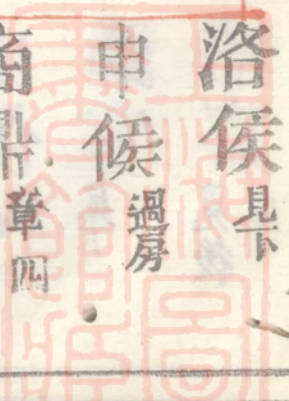 洛侯見下
申候過房
商鼎章四